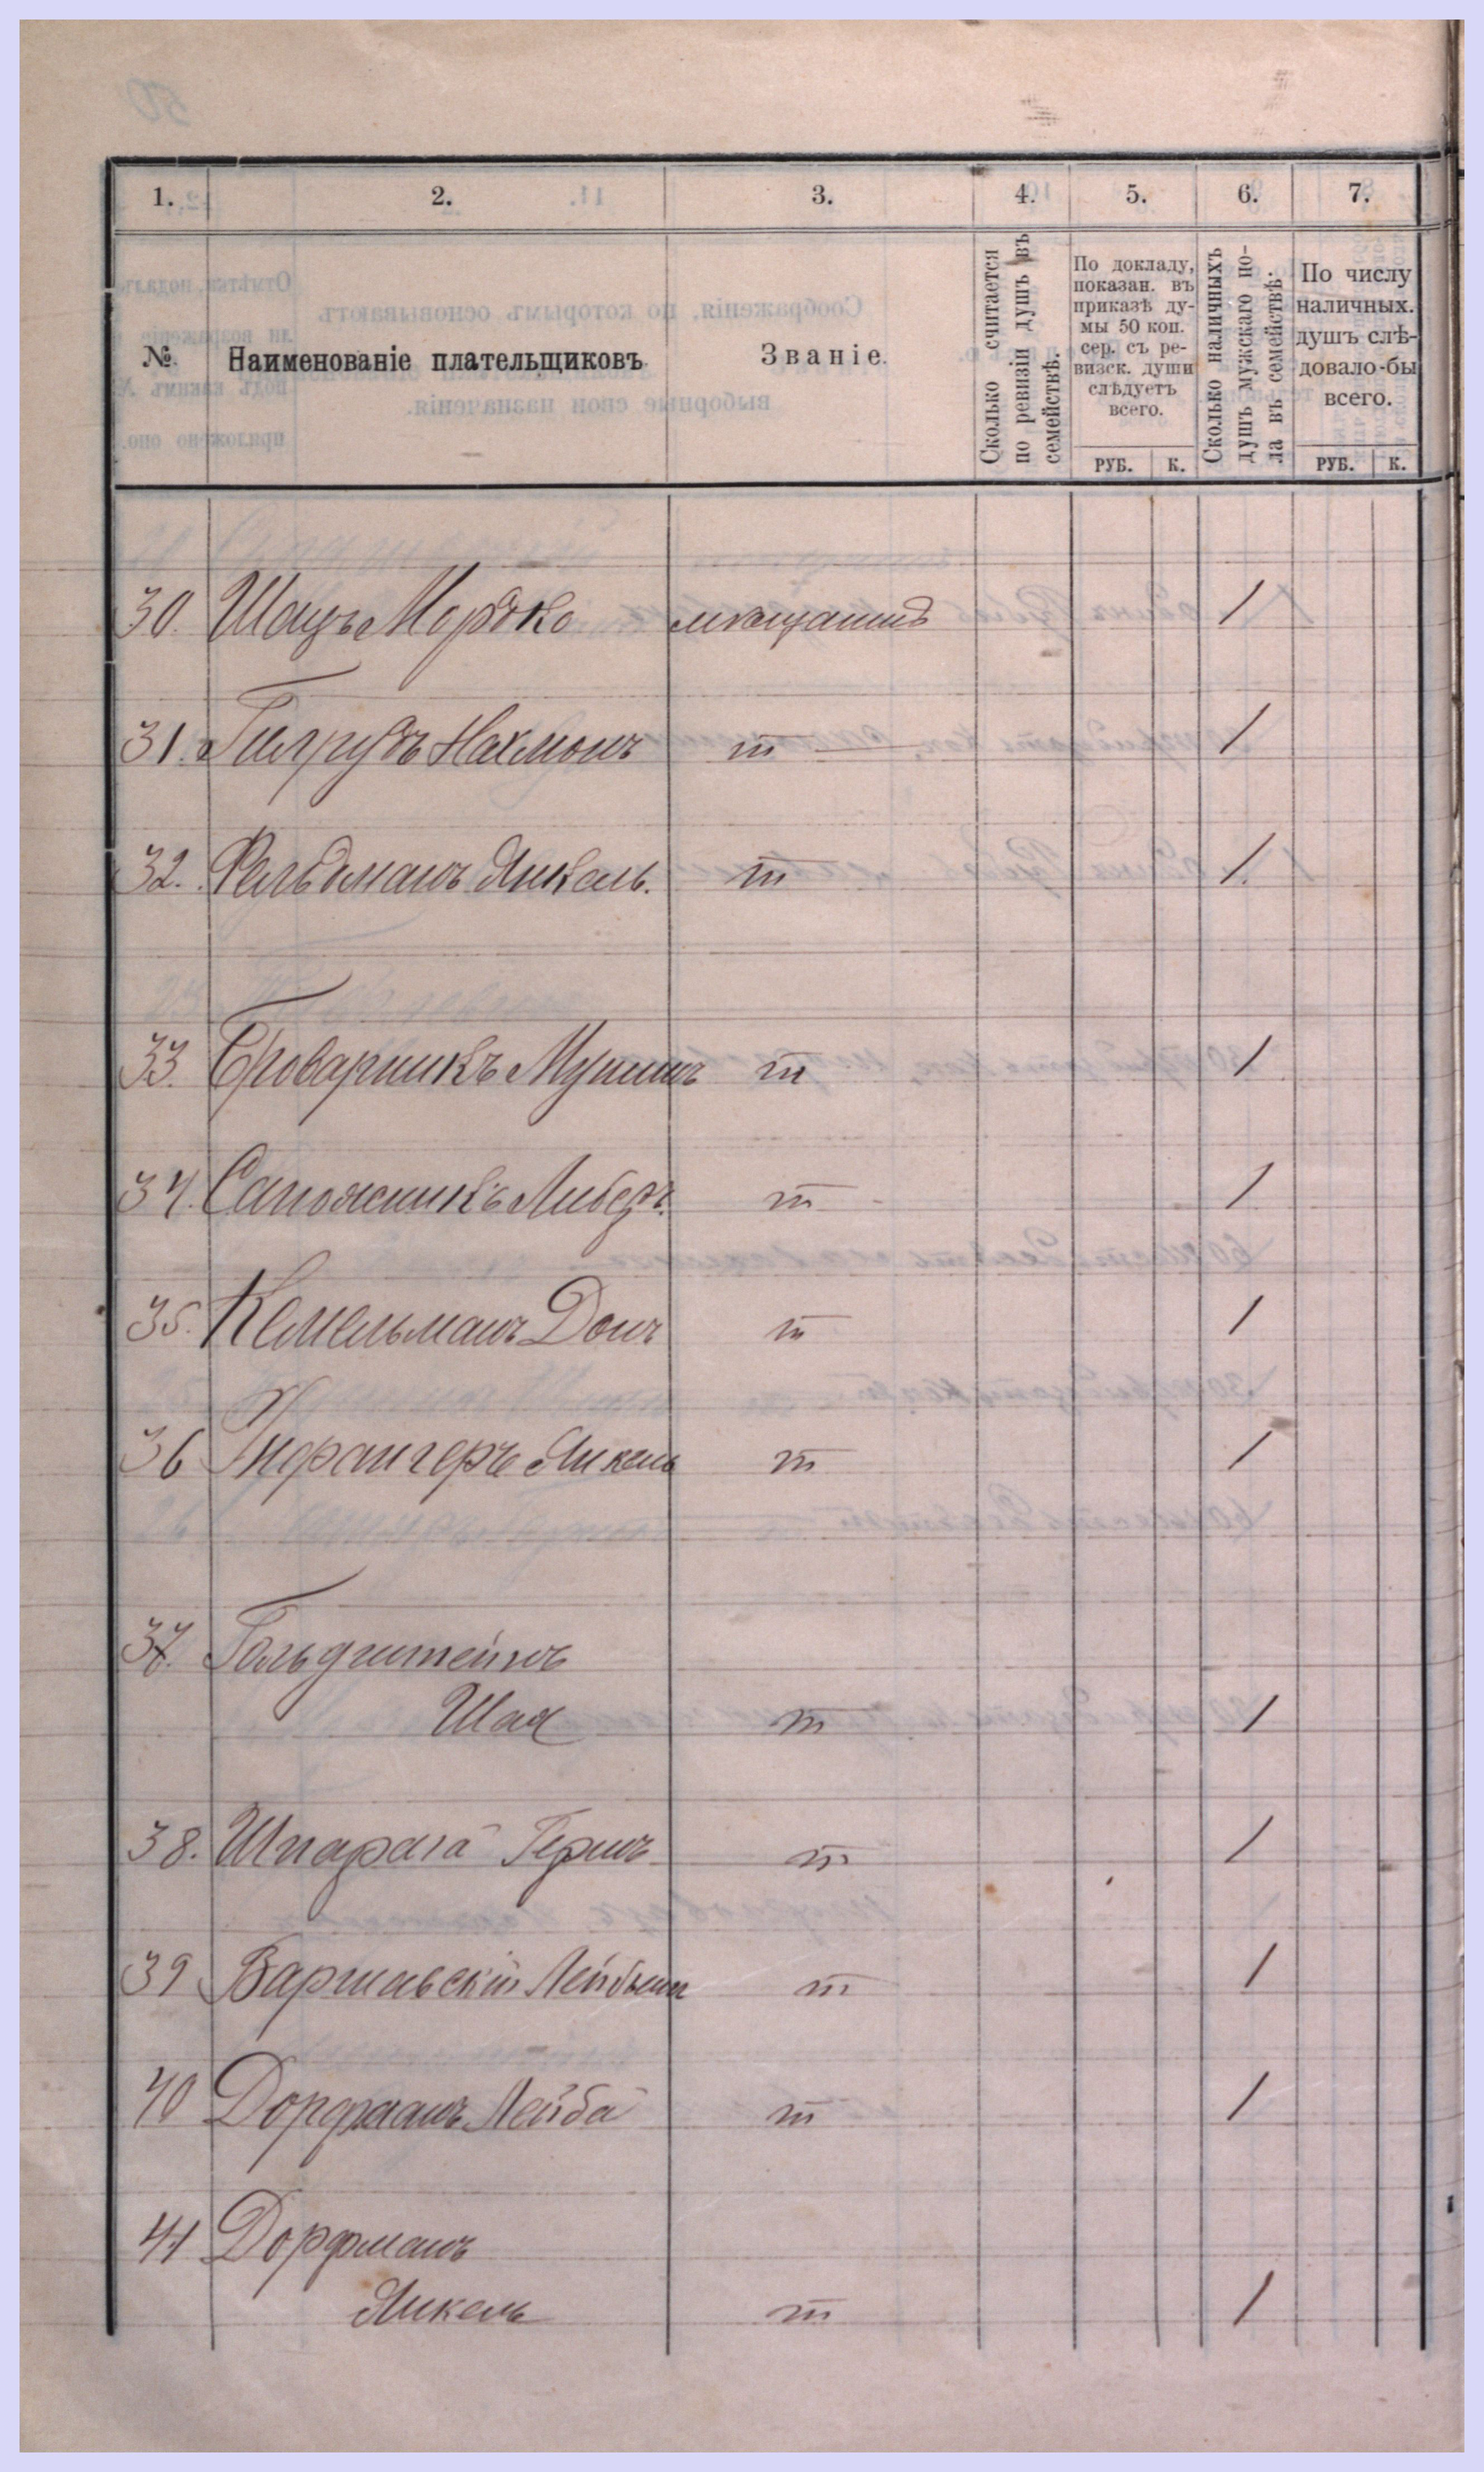 1. 2. 3. 4. 5. 6. 7.
№. Наименованіе плательщиковъ. Званіе.
Сколько считается
по ревизіи душъ въ
семействѣ.
По докладу,
показан. въ
приказѣ ду-
мы 50 коп.
сер. съ ре-
визск. души
слѣдуетъ
всего.
РУБ. К.
Сколько наличныхъ
душъ мужскаго по-
ла въ семействѣ.
По числу
наличныхъ.
душъ слѣ-
довало-бы
всего.
РУБ. К.
30. Шацъ Мордко мѣщанинъ 1
31. Нахманъ т 1
32. Фельдманъ Янкель. т 1.
33. Броварникъ т 1
34. Сапожникъ Либеръ. т 1
35. Кемельманъ Донъ т 1
36 Янкель т 1
37. Гольдштейнъ
Шая т 1
38. Шпарага Гершъ т 1
39 Варшавскій т 1
40 Дорфманъ Лейба т 1
41 Дорфманъ
Янкель т 1